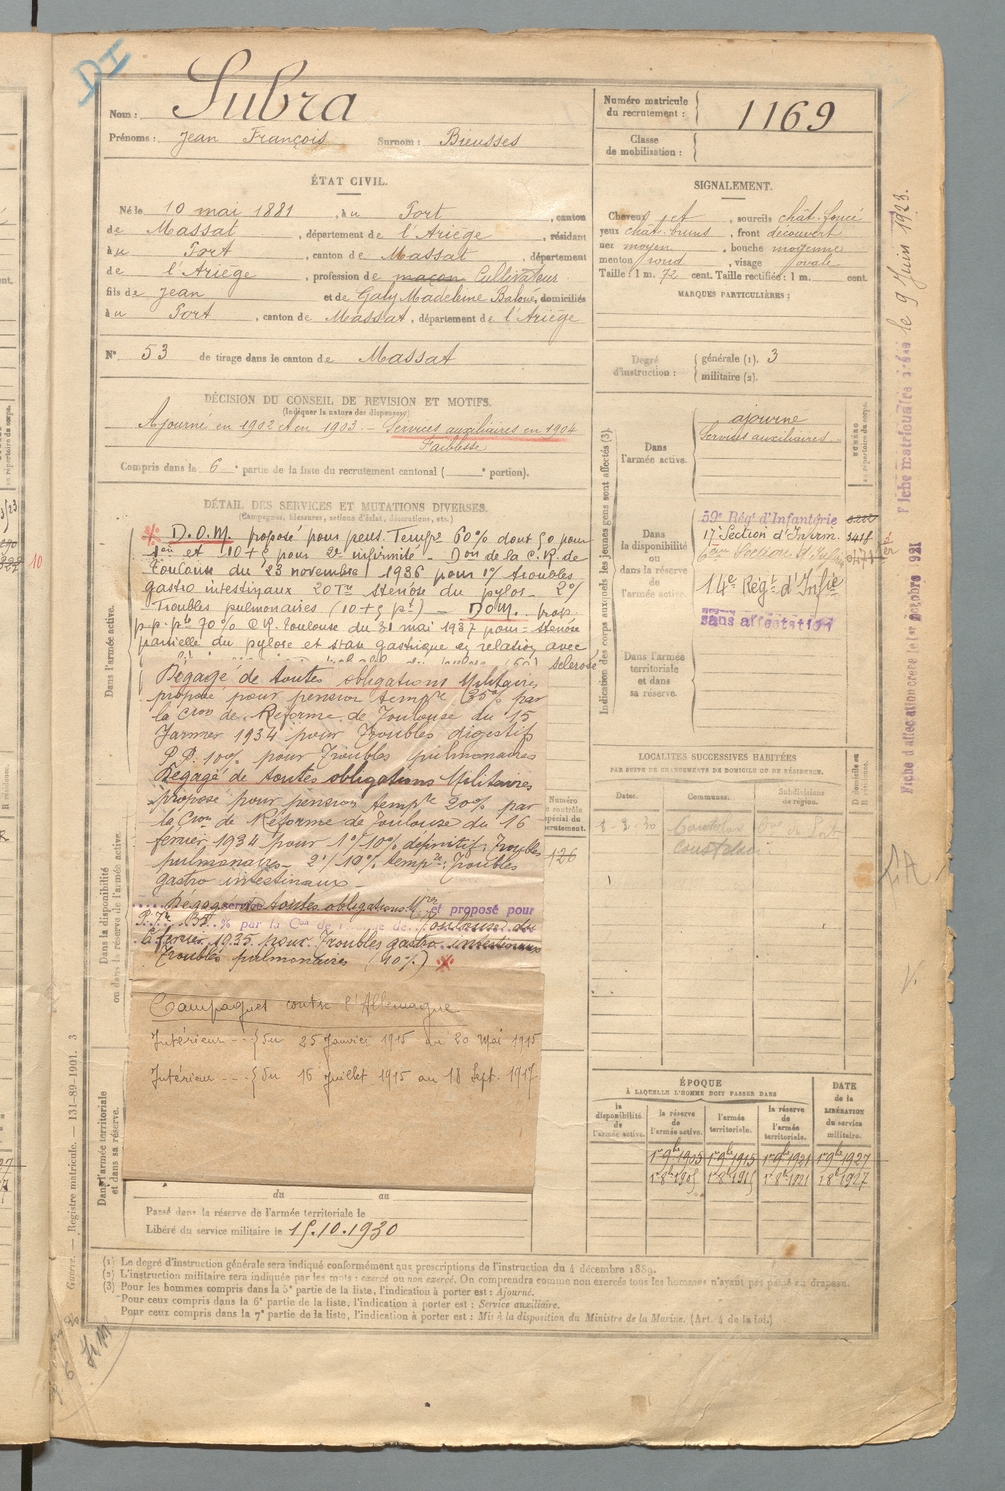 DI
Nom : Subra
Prénoms : Jean François Surnom : Bieusses
Numéro matricule du recrutement : 1169
Classe de mobilisation :
ÉTAT CIVIL.
Né le 10 mai 1881, à u Port, canton
de Massat, département de l'Ariège, résidant
à u Port, canton de Massat, département
de l'Ariège, profession de maçon Cultivateur
fils de Jean et de Galy Madeleine Batoué, domiciliés
à u Port, canton de Massat, département de l'Ariège
N° 53 de tirage dans le canton de Massat
SIGNALEMENT.
Cheveux jet, sourcils chât. foncé
yeux chât. bruns, front découvert
nez moyen, bouche moyenne
menton rond, visage ovale
Taille : 1 m. 72 cent. Taille rectifiée : 1 m. cent.
MARQUES PARTICULIÈRES :
Degré d'instruction : générale (1). 3
militaire (2).
DÉCISION DU CONSEIL DE REVISION ET MOTIFS.
(Indiquer la nature des dispenses)
Ajourné en 1902 et en 1903. – Services auxiliaires en 1904
Faiblesse
Compris dans la 6e partie de la liste du recrutement cantonal ( e portion).
DÉTAIL DES SERVICES ET MUTATIONS DIVERSES.
(Campagnes, blessures, actions d'éclat, décorations, etc.)
D.O.M. proposé pour pent. Tempre 60% dont 50 pour
et 10+5 pour 2e infirmité. Don de la C.R. de
Toulouse du 23 novembre 1936 pour 1°/ troubles
gastro intestinaux 20 Sténose du pylos 2°/
Troubles pulmonaires (10+5 pt) – D.O.M. prop.
p.p. 70% C.R. Toulouse du 31 mai 1937 pour : sténose
partielle du pylore et stase gastrique en relation avec
sclérose
Dégagé de toutes obligations Militaires
proposé pour pension tempre 35% par
la Cion de Réforme de Toulouse du 15
Janvier 1934 pour Troubles digestifs
P.P. 10% pour Troubles pulmonaires
Dégagé de toutes obligations Militaires
proposé pour pension tempre 20% par
la Cion de Réforme de Toulouse du 16
février 1934 pour 1°/ 10% définitif : Troubles
pulmonaires – 2°/ 10% tempre : Troubles
gastro intestinaux –
Dégagé de toutes obligations Mres et proposé pour
% par la Con de Toulouse du
février 1935 pour Troubles gastro-intestinaux
Troubles pulmonaires (10%)
Campagnes contre l'Allemagne
Intérieur -- } du 25 Janvier 1915 au 20 Mai 1915
Intérieur -- } du 16 Juillet 1915 au 18 Sept. 1917
du au
Passé dans la réserve de l'armée territoriale le
Libéré du service militaire le 15.10.1930
Dans l'armée active.
Dans la disponibilité ou dans la réserve de l'armée active.
Dans l'armée territoriale et dans sa réserve.
Numéro au contrôle spécial du recrutement.
126
Indication des corps auxquels les jeunes gens sont affectés (3).
Dans l'armée active.
ajourné
Services auxiliaires
NUMÉRO au répertoire du corps.
Dans la disponibilité ou dans la réserve de l'armée active.
59e Régt d'Infanterie
17e Section d'Infirm.
14e Régt d'Infie
sans affectation
Dans l'armée territoriale et dans sa réserve.
LOCALITÉS SUCCESSIVES HABITÉES
PAR SUITE DE CHANGEMENTS DE DOMICILE OU DE RÉSIDENCE.
Dates. Communes. Subdivisions de région. D domicile ou R résidence.
ÉPOQUE
À LAQUELLE L'HOMME DOIT PASSER DANS
la disponibilité de l'armée active.
la réserve de l'armée active.
l'armée territoriale.
la réserve de l'armée territoriale.
DATE de la LIBÉRATION du service militaire.
1r 9b 1905 1r 9b 1915 1r 9b 1921 1r 9b 1927
Fiche matriculaire créée le 9 Juin 1923.
Fiche d'affectation créée le 1er octobre 1921
Guerre. — Registre matricule. — 131-89-1901. 3
(1) Le degré d'instruction générale sera indiqué conformément aux prescriptions de l'instruction du 4 décembre 1889.
(2) L'instruction militaire sera indiquée par les mots : exercé ou non exercé. On comprendra comme non exercés tous les hommes n'ayant pas passé au drapeau.
(3) Pour les hommes compris dans la 5e partie de la liste, l'indication à porter est : Ajourné.
Pour ceux compris dans la 6e partie de la liste, l'indication à porter est : Service auxiliaire.
Pour ceux compris dans la 7e partie de la liste, l'indication à porter est : Mis à la disposition du Ministre de la Marine. (Art. 4 de la loi.)